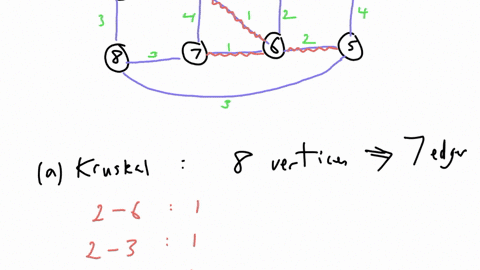 1
3
4
2
4
8
7
1
6
2
5
3
(a) Kruskal : 8 vertices ⇒ 7 edges
2-6 : 1
2-3 : 1